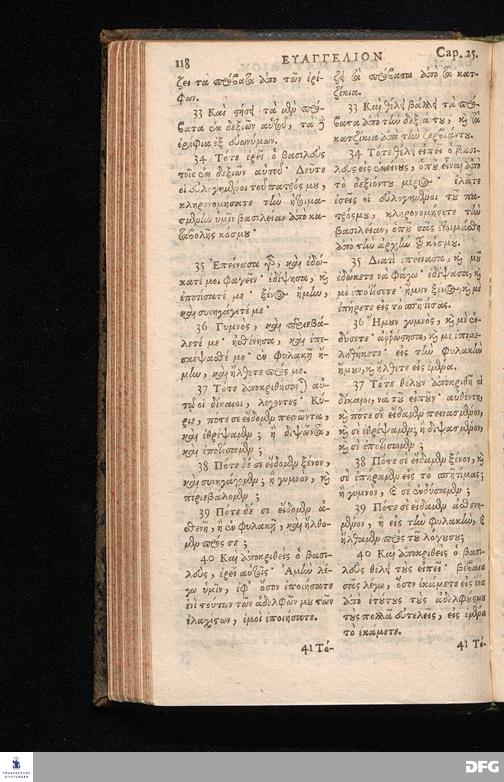 118
ΕΥΑΓΓΕΛΙΟΝ
Cap. 25.
ζει τὰ πρόβατα ἀπὸ τῶν ἐρί-
φων.
33 Καὶ στήσῃ τὰ μὲν πρό-
βατα ἐκ δεξιῶν αὑτοῦ, τὰ δὲ
ἐρίφια ἐξ εὐωνύμων.
34 Τότε ἐρεῖ ὁ βασιλεὺς
τοῖς ἐκ δεξιῶν αὑτοῦ· Δεῦτε
οἱ εὐλογημένοι τοῦ πατρός μου,
κληρονομήσατε τὴν ἡτοιμα-
σμένην ὑμῖν βασιλείαν ἀπὸ κα-
ταβολῆς κόσμου·
35 Ἐπείνασα γὰρ, καὶ ἐδώ-
κατέ μοι φαγεῖν· ἐδίψησα, καὶ
ἐποτίσατέ με· ξένος ἤμην,
καὶ συνηγάγετέ με·
36 Γυμνὸς, καὶ περιεβά-
λετέ με· ἠσθένησα, καὶ ἐπε-
σκέψασθέ με· ἐν φυλακῇ ἤ-
μην, καὶ ἤλθετε πρός με.
37 Τότε ἀποκριθήσονται αὐ-
τῷ οἱ δίκαιοι, λέγοντες· Κύ-
ριε, πότε σε εἴδομεν πεινῶντα,
καὶ ἐθρέψαμεν; ἢ διψῶντα,
καὶ ἐποτίσαμεν;
38 Πότε δέ σε εἴδομεν ξένον,
καὶ συνηγάγομεν; ἢ γυμνὸν, καὶ
περιεβάλομεν;
39 Πότε δέ σε εἴδομεν ἀ-
σθενῆ, ἢ ἐν φυλακῇ, καὶ ἤλθο-
μεν πρός σε;
40 Καὶ ἀποκριθεὶς ὁ βασι-
λεὺς, ἐρεῖ αὐτοῖς· Ἀμὴν λέ-
γω ὑμῖν, ἐφ' ὅσον ἐποιήσατε
ἑνὶ τούτων τῶν ἀδελφῶν μου τῶν
ἐλαχίστων, ἐμοὶ ἐποιήσατε.
41 Τό-
ζει τὰ πρόβατα ἀπὸ τὰ κατ-
ζίκια.
33 Καὶ θέλει βάλλῃ τὰ πρό-
βατα ἀπὸ τὴν δεξιάν του, καὶ τὰ
κατζίκια ἀπὸ τὴν ζερβιάν του.
34 Τότε θέλει εἰπεῖ ὁ βασι-
λεὺς εἰς ἐκείνους, ὁποῦ εἶναι ἀπὸ
τὸ δεξιόν του μέρος· ἐλᾶτε
ἐσεῖς οἱ εὐλογημένοι τοῦ πα-
τρός μου, κληρονομήσετε τὴν
βασιλείαν, ὁποῦ σᾶς ἑτοιμάσθη
ἀπὸ τὴν ἀρχὴν τοῦ κόσμου.
35 Διατὶ ἐπείνασα, καὶ μοῦ
ἐδώκετε νὰ φάγω· ἐδίψασα, καὶ
με ἐποτίσετε· ἤμουν ξένος, καὶ με
ἐπήρετε εἰς τὸ σπήτι σας.
36 Ἤμουν γυμνὸς, καὶ με ἐν-
δύσετε· ἀρρώστησα, καὶ με ἐπιμε-
ληθήκετε· εἰς τὴν φυλακὴν
ἤμουν, καὶ ἤλθετε εἰς ἐμένα.
37 Τότε θέλουν ἀποκριθῆ οἱ
δίκαιοι, νὰ τοῦ εἰποῦν· αὐθέντη,
καὶ πότε σὲ εἴδαμεν πεινασμένον,
καὶ σὲ ἐθρέψαμεν; ἢ διψασμένον,
καὶ σὲ ἐποτίσαμεν;
38 Πότε σὲ εἴδαμεν ξένον, καὶ
σὲ ἐπήραμεν εἰς τὸ σπῆτί μας;
ἢ γυμνὸν, καὶ σὲ ἐνδύσαμεν;
39 Πότε σὲ εἴδαμεν ἀσθενη-
μένον, ἢ εἰς τὴν φυλακὴν, καὶ
ἤλθαμεν πρὸς τοῦ λόγου σου;
40 Καὶ ἀποκριθεὶς ὁ βασι-
λεὺς θέλει τοὺς εἰπεῖ· βέβαια
σᾶς λέγω, ὅσον ἐκάμετε εἰς ἕνα
ἀπὸ ἐτούτους τοὺς ἀδελφούς μου
τοὺς πολλὰ εὐτελεῖς, εἰς ἐμένα
τὸ ἐκάμετε.
41 Τό-
FRANCKESCHE STIFTUNGEN
DFG